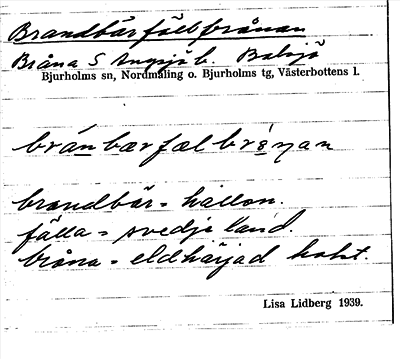 Brandbärfällbrånan
Bråna S Angsjö b. Balsjö
Bjurholms sn, Nordmaling o. Bjurholms tg, Västerbottens l.
brandbär = hallon.
fälla = svedjeland.
bråna = eldhärjad trakt.
Lisa Lidberg 1939.